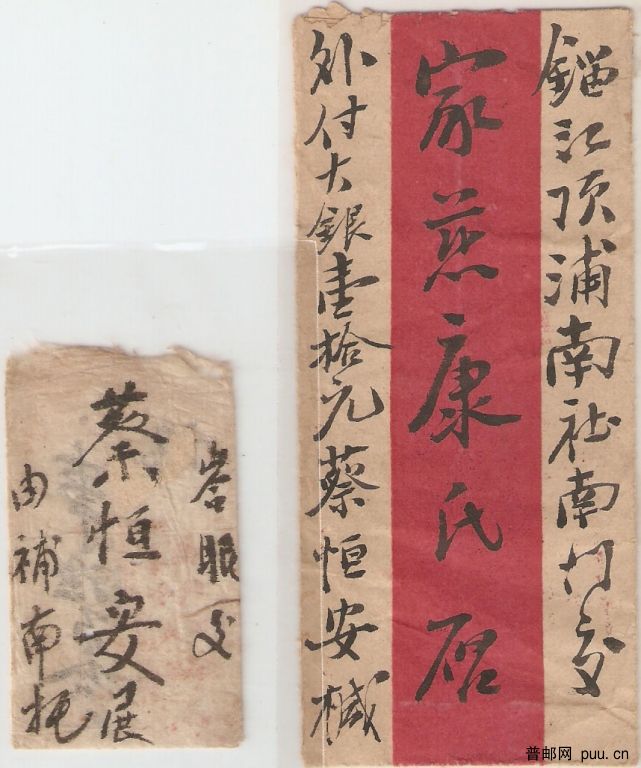 江顶浦南社南门交
家慈康氏启
外付大銀壹拾元蔡恒安椷
峇眼交
蔡恒安展
由補南托
普邮网 puu.cn